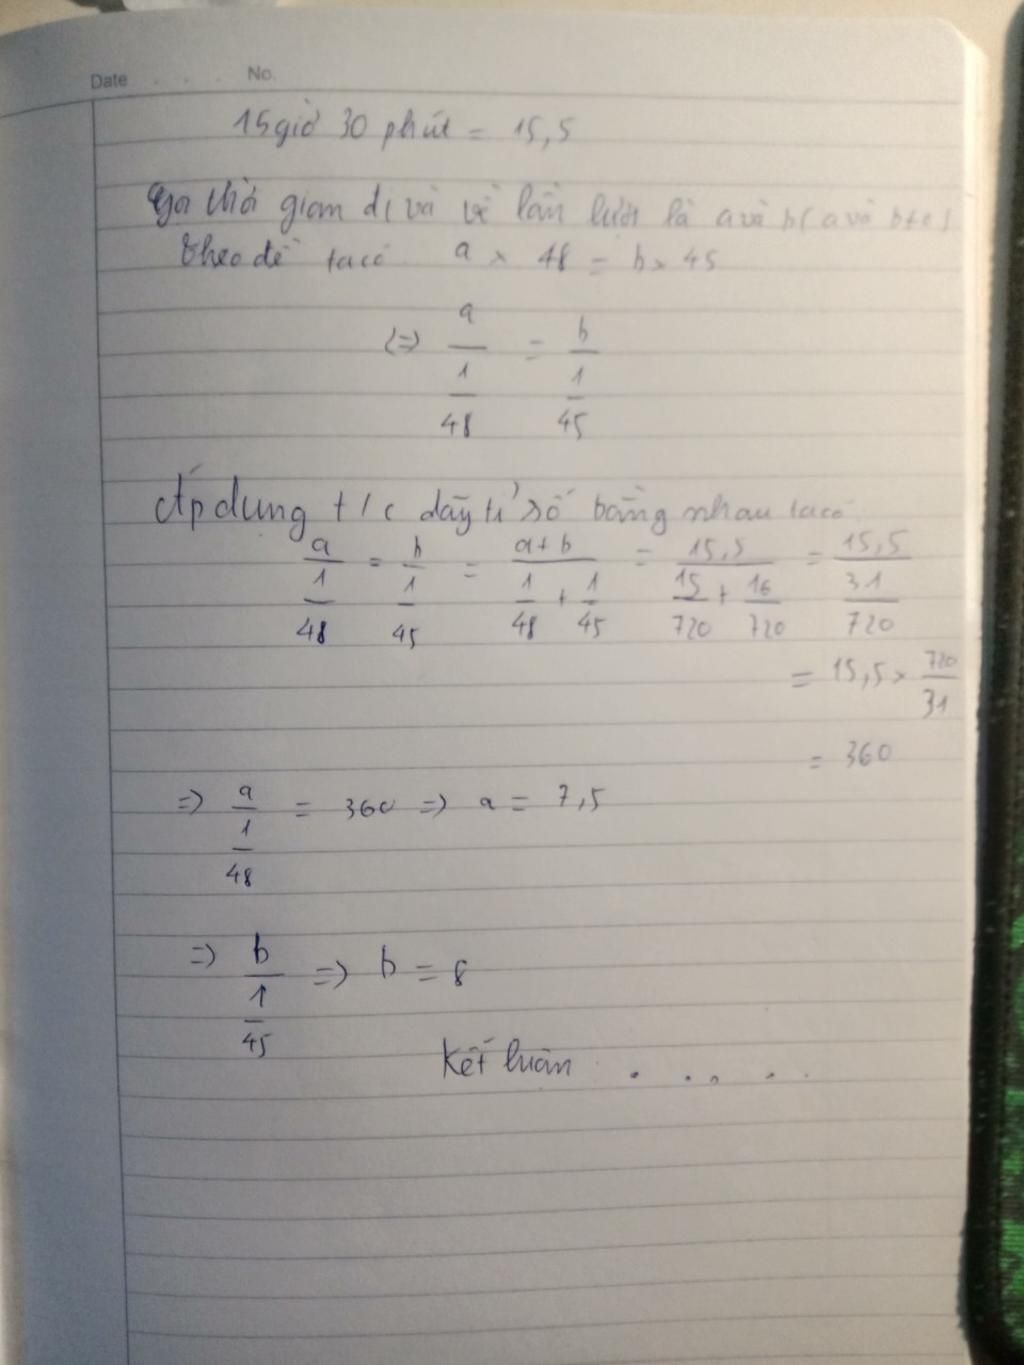 Date . . . . No.
15 giờ 30 phút = 15,5
Gọi thời gian đi và về lần lượt là a và b ( a và b ≠ 0 )
Theo đề ta có a × 48 = b × 45
(=) a / (1/48) = b / (1/45)
Áp dụng t/c dãy tỉ số bằng nhau ta có
a / (1/48) = b / (1/45) = (a + b) / (1/48 + 1/45) = 15,5 / (15/720 + 16/720) = 15,5 / (31/720)
= 15,5 × 720/31
= 360
=) a / (1/48) = 360 =) a = 7,5
=) b / (1/45) =) b = 8
Kết luận . . . . .